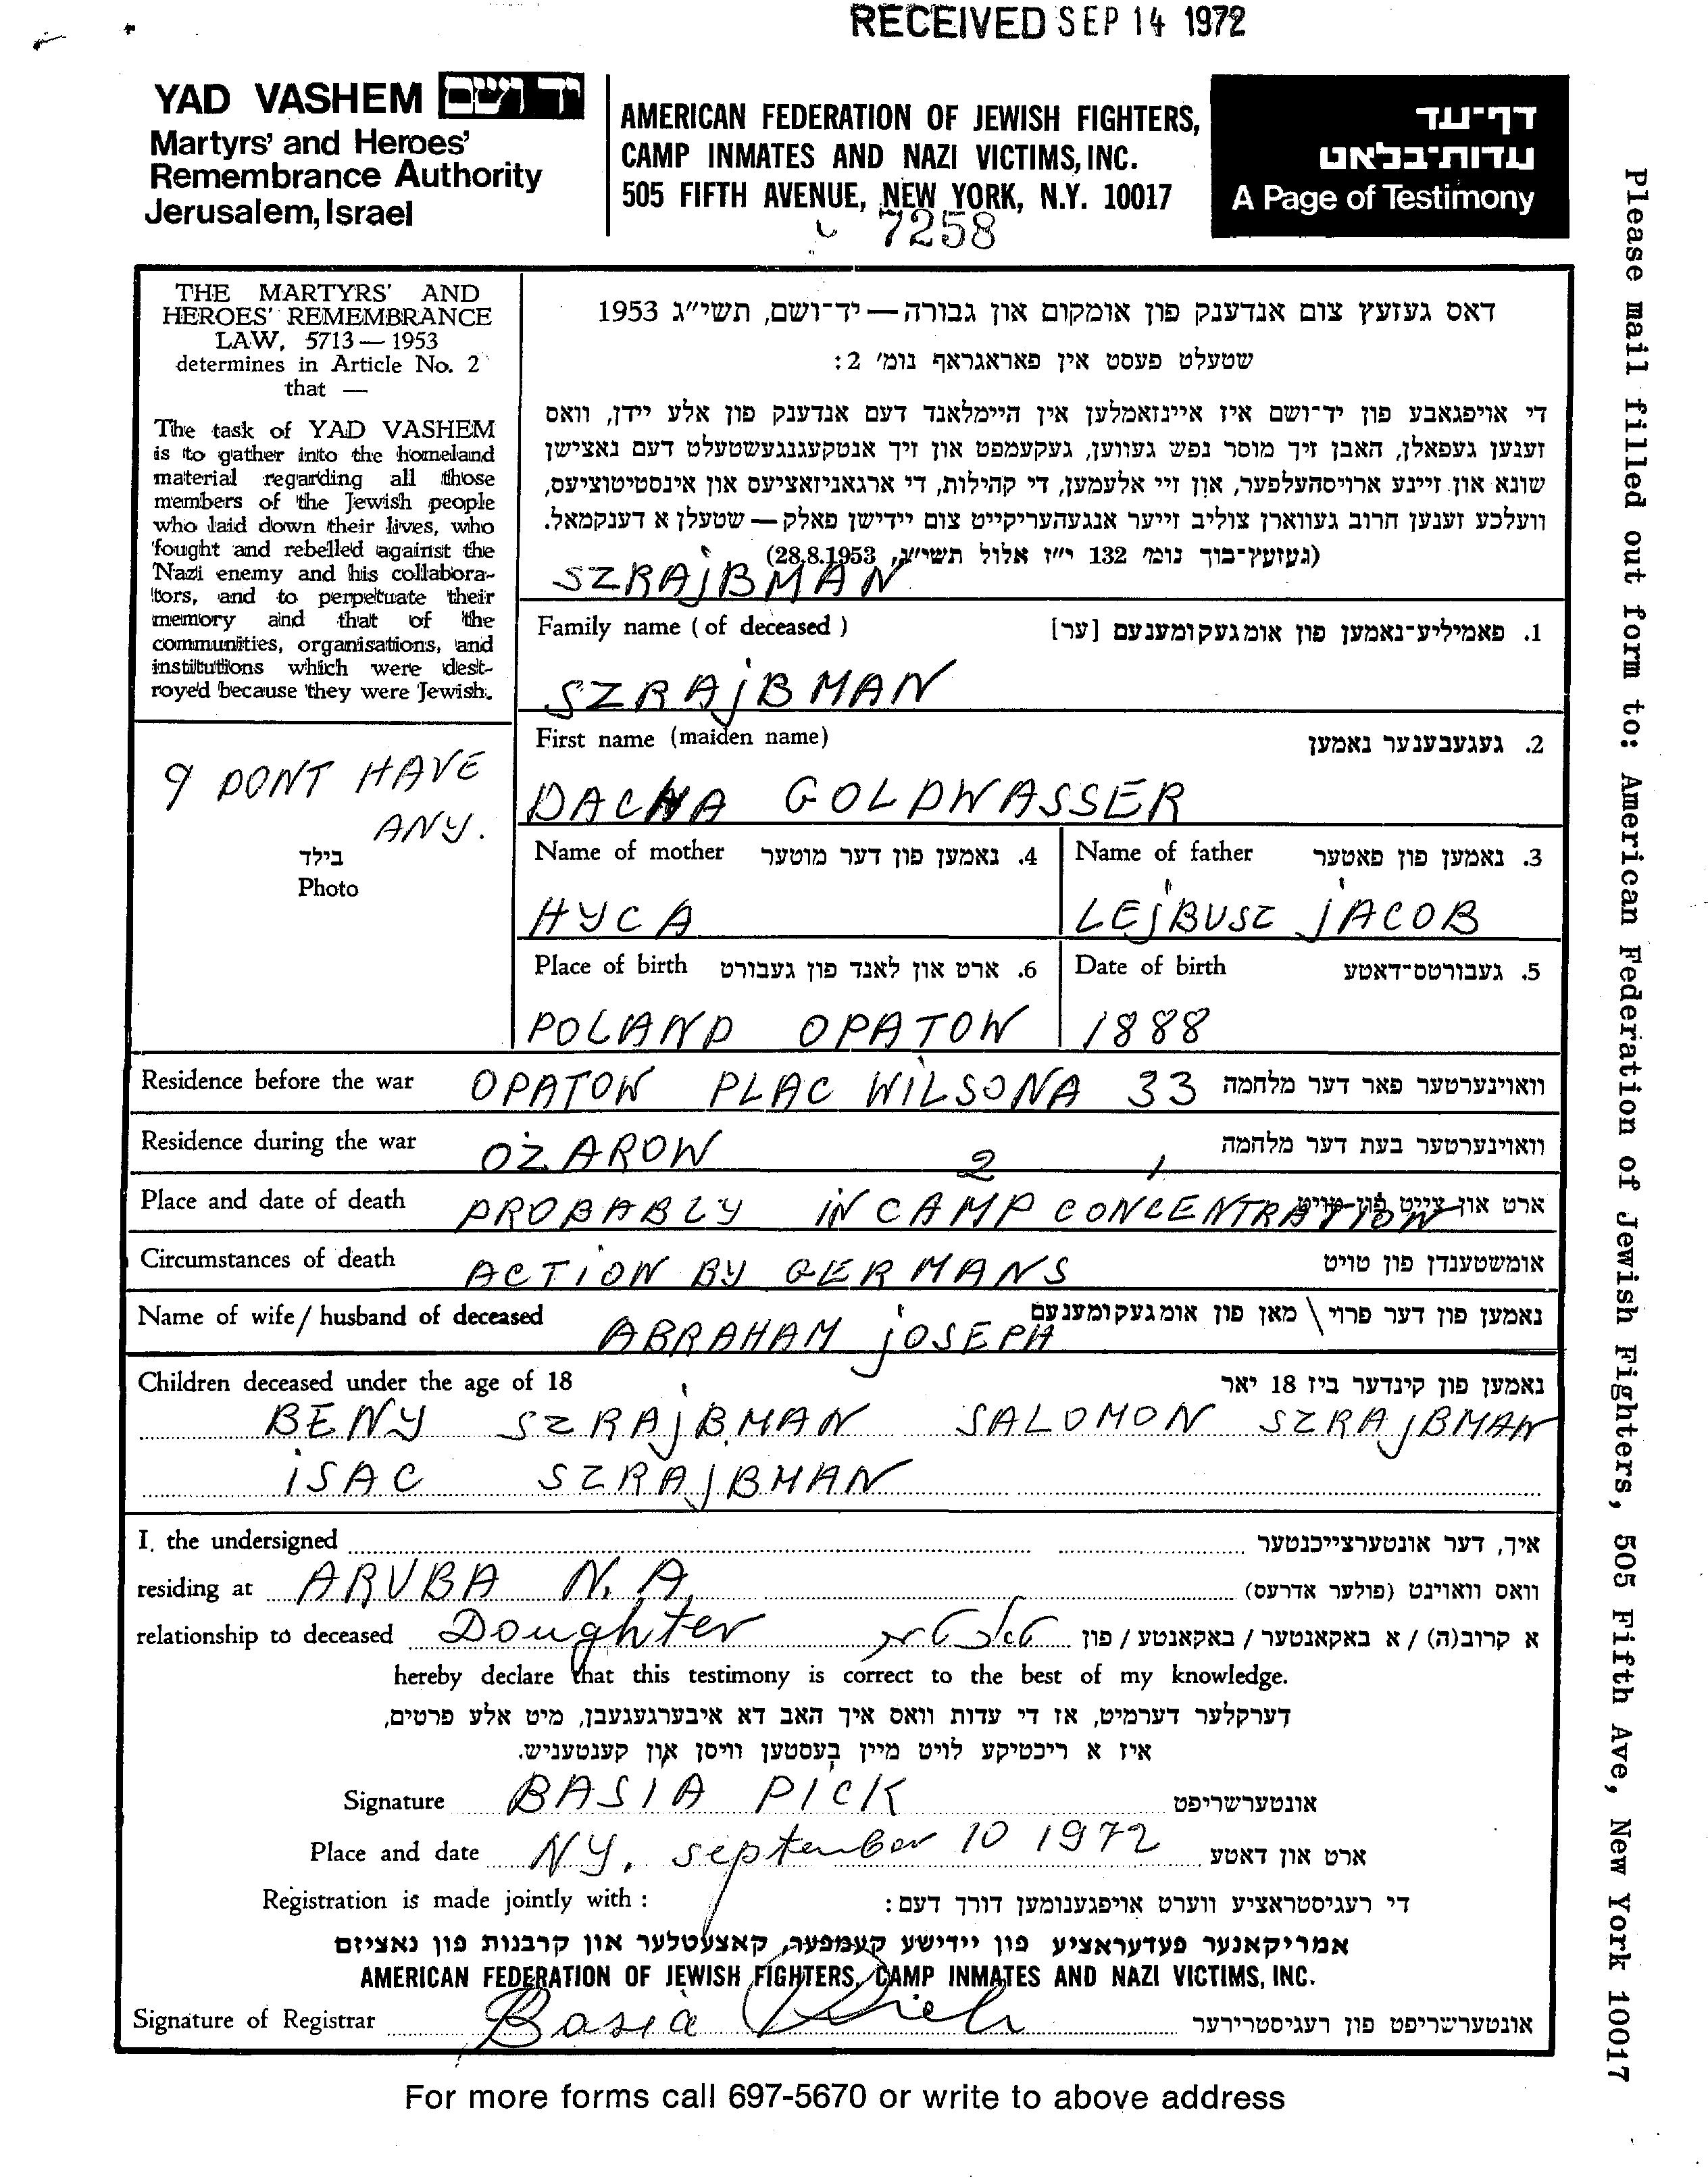 RECEIVED SEP 14 1972
YAD VASHEM יד ושם
Martyrs' and Heroes'
Remembrance Authority
Jerusalem, Israel
AMERICAN FEDERATION OF JEWISH FIGHTERS,
CAMP INMATES AND NAZI VICTIMS, INC.
505 FIFTH AVENUE, NEW YORK, N.Y. 10017
7258
דף־עד
עדות־בלאט
A Page of Testimony
THE MARTYRS' AND
HEROES' REMEMBRANCE
LAW, 5713 — 1953
determines in Article No. 2
that —
The task of YAD VASHEM
is to gather into the homeland
material regarding all those
members of the Jewish people
who laid down their lives, who
fought and rebelled against the
Nazi enemy and his collabora-
tors, and to perpetuate their
memory and that of the
communities, organisations, and
institutions which were dest-
royed because they were Jewish.
דאס געזעץ צום אנדענק פון אומקום און גבורה — יד־ושם, תשי״ג 1953
שטעלט פעסט אין פאראגראף נומ׳ 2:
די אויפגאבע פון יד־ושם איז איינזאמלען אין היימלאנד דעם אנדענק פון אלע יידן, וואס
זענען געפאלן, האבן זיך מוסר נפש געווען, געקעמפט און זיך אנטקעגנגעשטעלט דעם נאצישן
שונא און זיינע ארויסהעלפער, און זיי אלעמען, די קהילות, די ארגאניזאציעס און אינסטיטוציעס,
וועלכע זענען חרוב געווארן צוליב זייער אנגעהעריקייט צום יידישן פאלק — שטעלן א דענקמאל.
(געזעץ־בוך נומ׳ 132 י״ז אלול תשי״ג, 28.8.1953)
SZRAJBMAN
Family name (of deceased) 1. פאמיליע־נאמען פון אומגעקומענעם [ער]
SZRAJBMAN
First name (maiden name) 2. געגעבענער נאמען
DACHA GOLDWASSER
I DONT HAVE
ANY.
בילד
Photo
Name of mother 4. נאמען פון דער מוטער Name of father 3. נאמען פון פאטער
HYCA LEJBUSZ JACOB
Place of birth 6. ארט און לאנד פון געבורט Date of birth 5. געבורטס־דאטע
POLAND OPATOW 1888
Residence before the war OPATOW PLAC WILSONA 33 וואוינערטער פאר דער מלחמה
Residence during the war OŻAROW וואוינערטער בעת דער מלחמה
2 1
Place and date of death PROBABLY IN CAMP CONCENTRATION ארט און צייט פון טויט
Circumstances of death ACTION BY GERMANS אומשטענדן פון טויט
Name of wife / husband of deceased ABRAHAM JOSEPH נאמען פון דער פרוי \ מאן פון אומגעקומענעם
Children deceased under the age of 18 נאמען פון קינדער ביז 18 יאר
BENY SZRAJBMAN SALOMON SZRAJBMAN
ISAC SZRAJBMAN
I, the undersigned איך, דער אונטערצייכנטער
residing at ARUBA N.A. וואס וואוינט (פולער אדרעס)
relationship to deceased Doughter טאכטער א קרוב(ה) / א באקאנטער / באקאנטע / פון
hereby declare that this testimony is correct to the best of my knowledge.
דערקלער דערמיט, אז די עדות וואס איך האב דא איבערגעגעבן, מיט אלע פרטים,
איז א ריכטיקע לויט מיין בעסטען וויסן און קענטעניש.
Signature BASIA PICK אונטערשריפט
Place and date NY, september 10 1972 ארט און דאטע
Registration is made jointly with : די רעגיסטראציע ווערט אויפגענומען דורך דעם:
אמריקאנער פעדעראציע פון יידישע קעמפער, קאצעטלער און קרבנות פון נאציזם
AMERICAN FEDERATION OF JEWISH FIGHTERS, CAMP INMATES AND NAZI VICTIMS, INC.
Signature of Registrar Basia Pick אונטערשריפט פון רעגיסטרירער
For more forms call 697-5670 or write to above address
Please mail filled out form to: American Federation of Jewish Fighters, 505 Fifth Ave, New York 10017